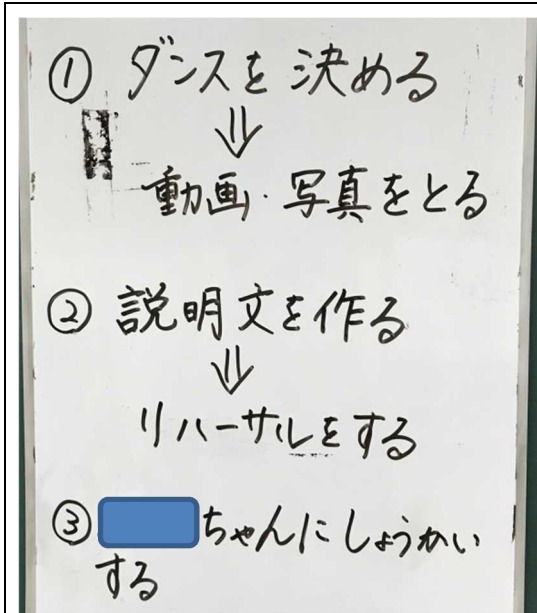 ① ダンスを決める
⇓
動画・写真をとる
② 説明文を作る
⇓
リハーサルをする
③ ちゃんにしょうかい
する